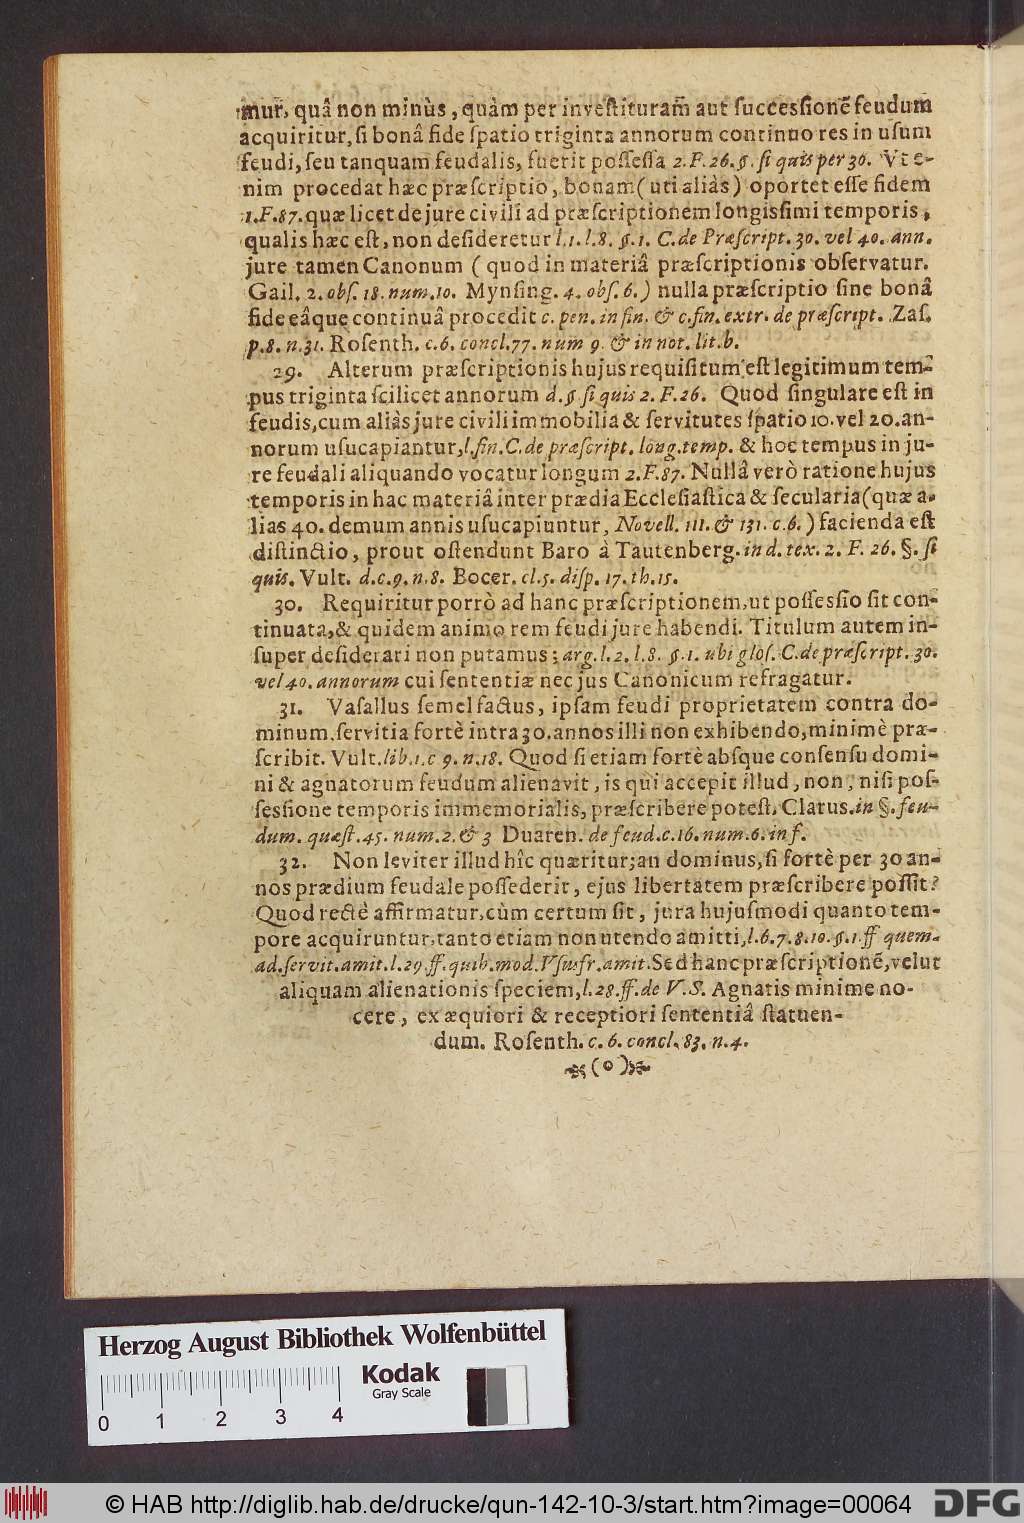 mur, quâ non minùs, quàm per investituram̃ aut successionẽ feudum
acquiritur, si bonâ fide spatio triginta annorum continuo res in usum
feudi, seu tanquam feudalis, fuerit possessa 2. F. 26. §. si quis per 30. Vt e-
nim procedat hæc præscriptio, bonam (uti aliàs) oportet esse fidem
1. F. 87. quæ licet de jure civili ad præscriptionem longissimi temporis,
qualis hæc est, non desideretur l. 1. l. 8. §. 1. C. de Præscript. 30. vel 40. ann.
jure tamen Canonum (quod in materiâ præscriptionis observatur.
Gail. 2. obs. 18. num. 10. Mynsing. 4. obs. 6.) nulla præscriptio sine bonâ
fide eâque continuâ procedit c. pen. in fin. & c. fin. extr. de præscript. Zas.
p. 8. n. 31. Rosenth. c. 6. concl. 77. num 9. & in not. lit. b.
29. Alterum præscriptionis hujus requisitum est legitimum tem-
pus triginta scilicet annorum d. § si quis 2. F. 26. Quod singulare est in
feudis, cum aliàs jure civili immobilia & servitutes spatio 10. vel 20. an-
norum usucapiantur, l. fin. C. de præscript. long. temp. & hoc tempus in ju-
re feudali aliquando vocatur longum 2. F. 87. Nullâ verò ratione hujus
temporis in hac materiâ inter prædia Ecclesiastica & secularia (quæ a-
lias 40. demum annis usucapiuntur, Novell. 111. & 131. c. 6.) facienda est
distinctio, prout ostendunt Baro à Tautenberg. in d. tex. 2. F. 26. §. si
quis. Vult. d. c. 9. n. 8. Bocer. cl. 5. disp. 17. th. 15.
30. Requiritur porrò ad hanc præscriptionem, ut possessio sit con-
tinuata, & quidem animo rem feudi jure habendi. Titulum autem in-
super desiderari non putamus; arg. l. 2. l. 8. §. 1. ubi glos. C. de præscript. 30.
vel 40. annorum cui sententiæ nec jus Canonicum refragatur.
31. Vasallus semel factus, ipsam feudi proprietatem contra do-
minum, servitia fortè intra 30. annos illi non exhibendo, minimè præ-
scribit. Vult. lib. 1. c 9. n. 18. Quod si etiam fortè absque consensu domi-
ni & agnatorum feudum alienavit, is qui accepit illud, non, nisi pos-
sessione temporis immemorialis, præscribere potest. Clarus. in §. feu-
dum. quæst. 45. num. 2. & 3 Duaren. de feud. c. 16. num. 6. in f.
32. Non leviter illud hîc quæritur; an dominus, si fortè per 30 an-
nos prædium feudale possederit, ejus libertatem præscribere possit?
Quod rectè affirmatur, cùm certum sit, jura hujusmodi quanto tem-
pore acquiruntur, tanto etiam non utendo amitti, l. 6. 7. 8. 10. §. 1. ff quem-
ad. servit. amit. l. 29. ff. quib. mod. Vsusfr. amit. Sed hanc præscriptionẽ, velut
aliquam alienationis speciem, l. 28. ff. de V. S. Agnatis minime no-
cere, ex æquiori & receptiori sententiâ statuen-
dum. Rosenth. c. 6. concl. 83. n. 4.
(o)
Herzog August Bibliothek Wolfenbüttel
Kodak
Gray Scale
0 1 2 3 4
© HAB http://diglib.hab.de/drucke/qun-142-10-3/start.htm?image=00064
DFG